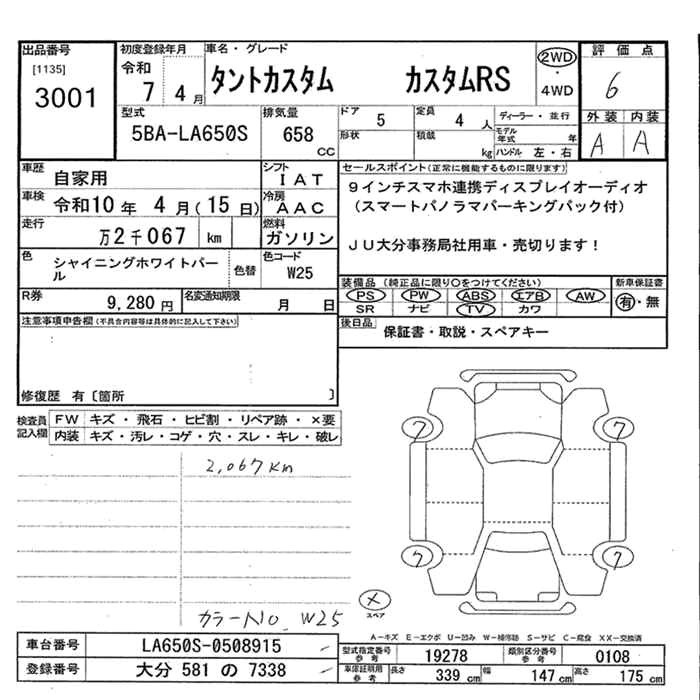 出品番号
[1135]
3001
初度登録年月
令和
7 4 月
車名・グレード
タントカスタム カスタムRS
2WD
・
4WD
評価点
6
外装 内装
A A
型式
5BA-LA650S
排気量
658
CC
ドア
5
形状
定員
4 人
積載
kg
ディーラー・並行
モデル年式 年
ハンドル 左・右
車歴
自家用
シフト
IAT
車検
令和10 年 4 月(15 日)
冷房
AAC
走行
万2千067 km
燃料
ガソリン
色
シャイニングホワイトパール
色替
色コード
W25
R券
9,280 円
名変通知期限
月 日
セールスポイント(正常に機能するものに限ります)
9インチスマホ連携ディスプレイオーディオ
(スマートパノラマパーキングパック付)
JU大分事務局社用車・売切ります!
装備品(純正品に限り○をつけてください)
PS PW ABS エアB AW
SR ナビ TV カワ
新車保証書
有・無
後日品
保証書・取説・スペアキー
注意事項申告欄(不具合内容等は具体的に記入して下さい)
修復歴 有〔箇所 〕
検査員記入欄
FW キズ・飛石・ヒビ割・リペア跡・×要
内装 キズ・汚レ・コゲ・穴・スレ・キレ・破レ
2,067km
7 7
7 7
×
スペア
カラーNo. W25
A-キズ E-エクボ U-凹み W-補修跡 S-サビ C-腐食 XX-交換済
車台番号 LA650S-0508915
登録番号 大分 581 の 7338
型式指定番号
参考
19278
類別区分番号
参考
0108
車庫証明用
参考
長さ 339 cm 幅 147 cm 高さ 175 cm